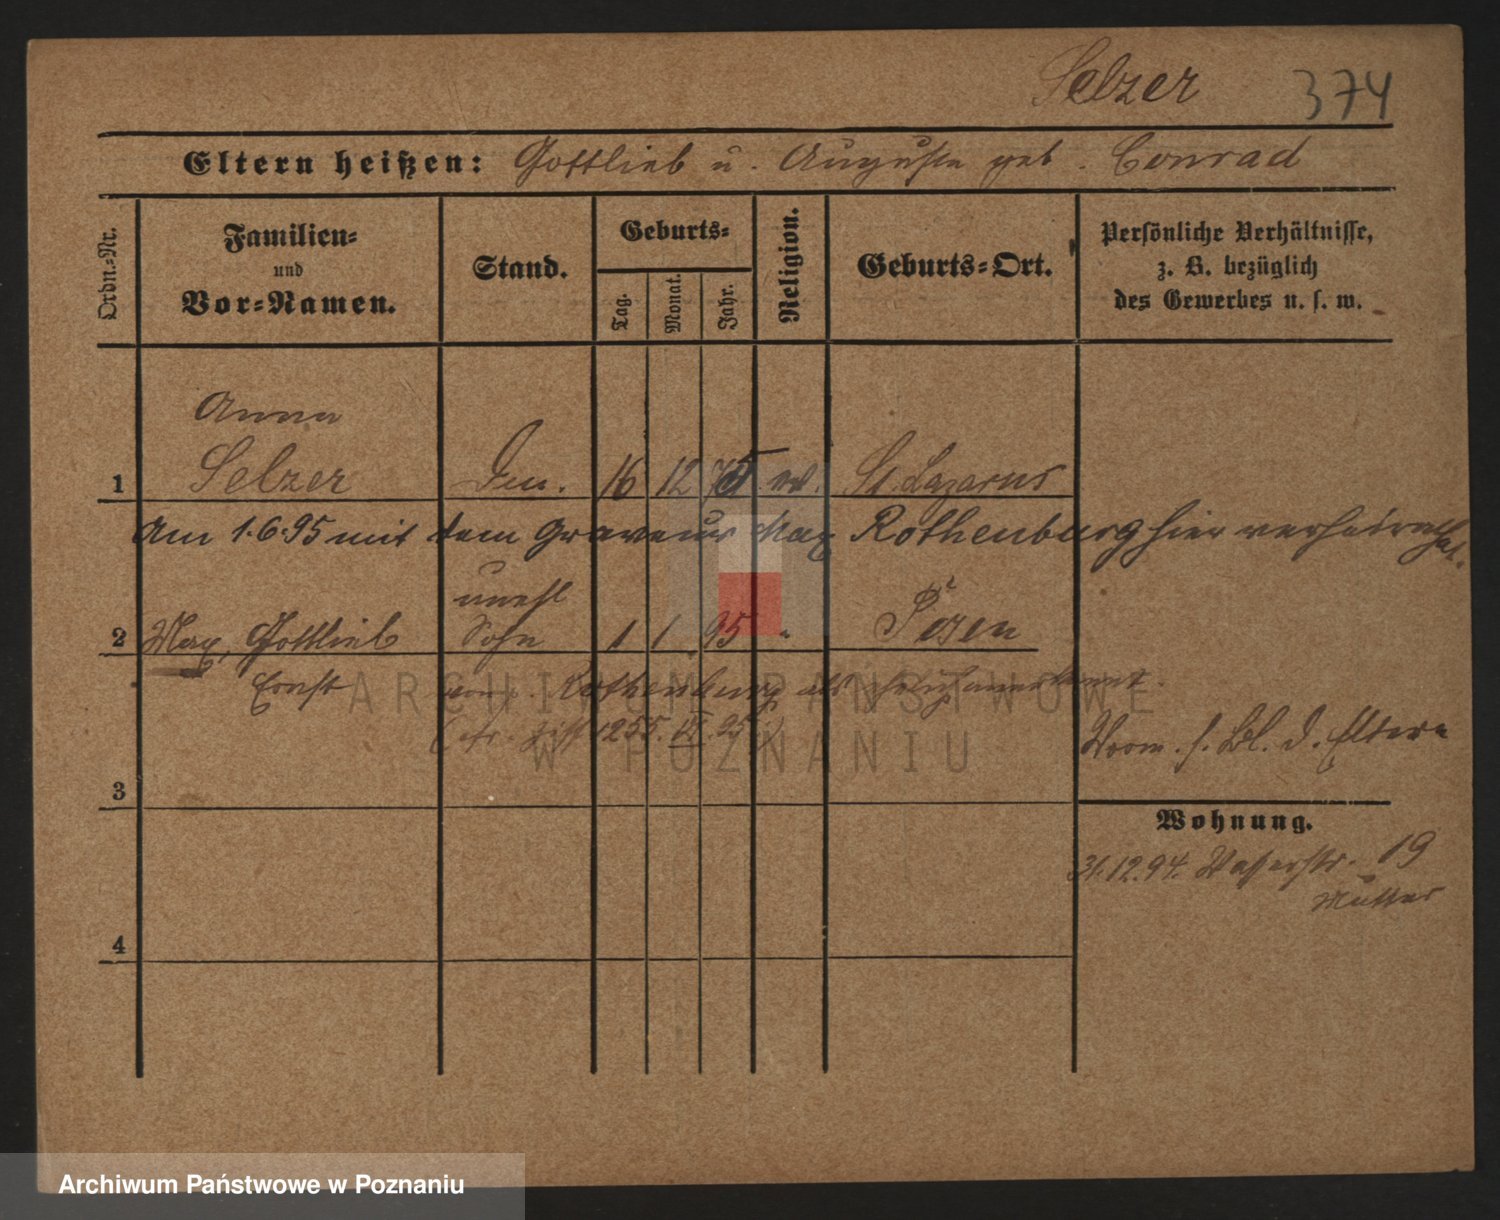 Selzer 374
Eltern heißen: Gottlieb u. Auguste geb. Conrad
Ordn.-Nr.
Familien- und Vor-Namen.
Stand.
Geburts-
Tag.
Monat.
Jahr.
Religion.
Geburts-Ort.
Persönliche Verhältnisse,
z. B. bezüglich
des Gewerbes u. s. w.
Anna
1 Selzer 16 12 75 ev. St. Lazarus
Am 1.6.95 mit dem Graveur Max Rothenburg hier verheirathet.
unehl
2 Max, Gottlieb Sohn 1 1 95 " Posen
Ernst Rothenburg als
1255.
Vorm. s. Bl. d. Eltern
3
Wohnung.
31.12.94. Wasserstr. 19
Mutter
4
ARCHIWUM PAŃSTWOWE
W POZNANIU
Archiwum Państwowe w Poznaniu